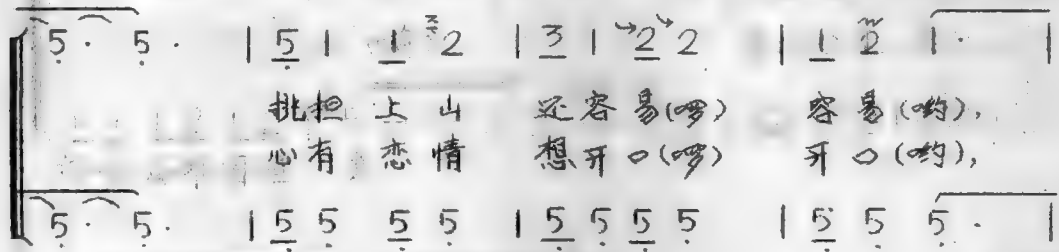 5̣· 5̣· | 5̣ 1 1 2 | 3 1 2 2 | 1 2 1· |
挑担 上山 还容易(啰) 容易(哟),
心有 恋情 想开口(啰) 开口(哟),
5̣· 5̣· | 5̣ 5̣ 5̣ 5̣ | 5̣ 5̣ 5̣ 5̣ | 5̣ 5̣ 5̣· |